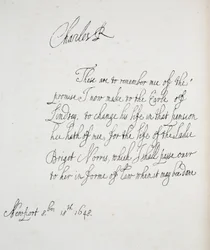 Charles R
These are to remember me of the
promise I now make to the Earle of
Lindsey, to change his life in that pension
hee hath of mee, for the life of the Ladie
Briget Norris, which I shall passe over
to her in forme of Law when it may bee done
Newport 8br 18th 1648.